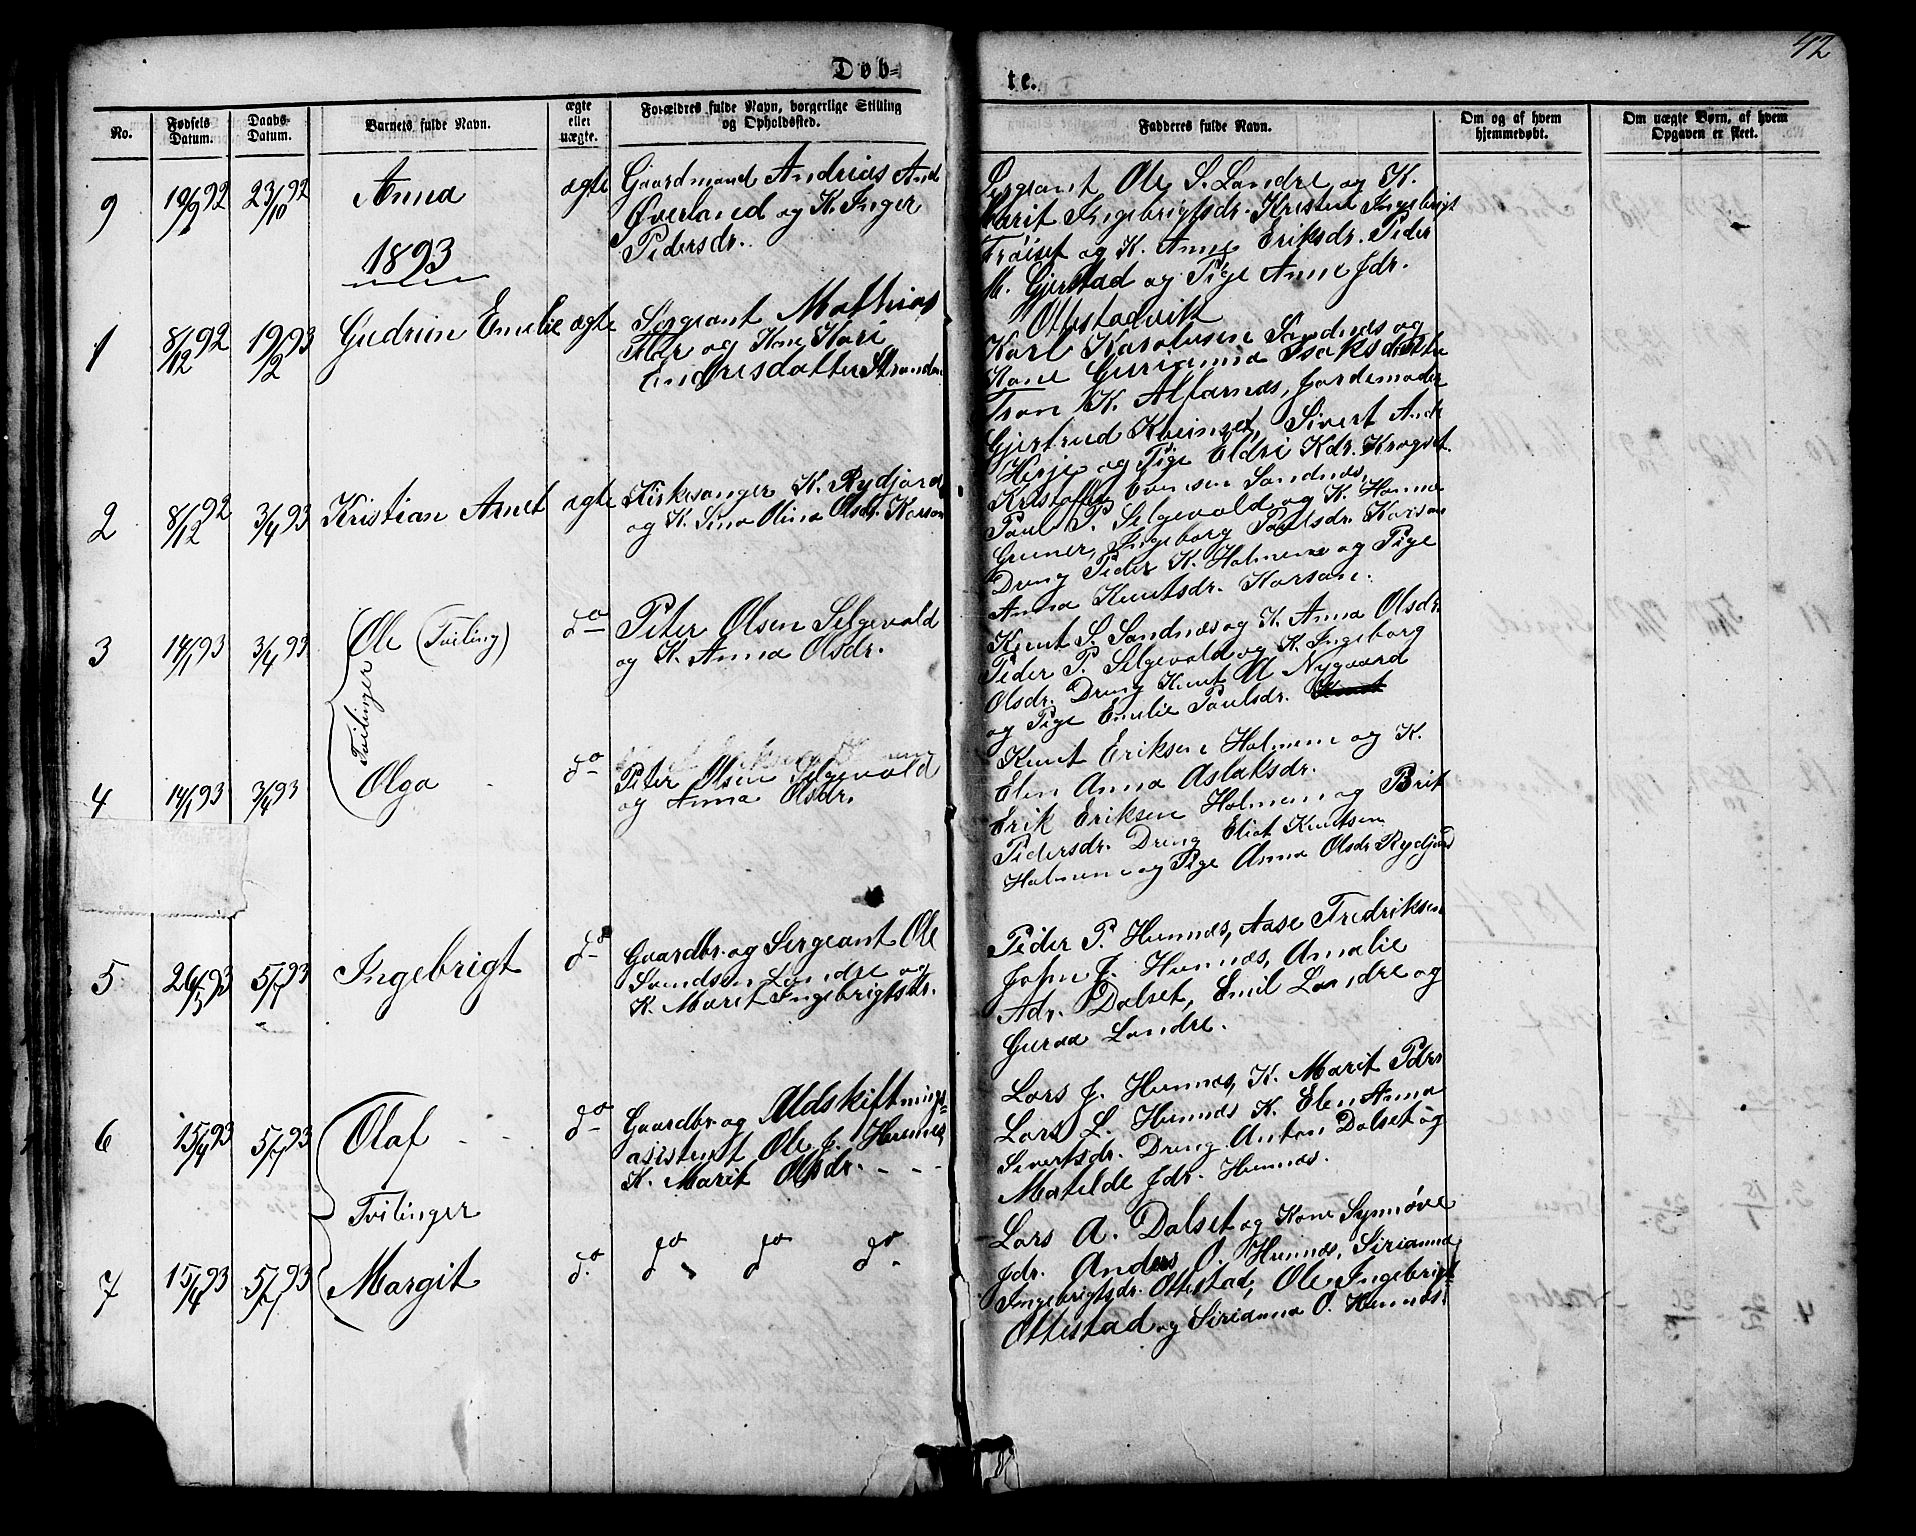 42
Døb-
te.
No.
Fødsels Datum.
Daabs-Datum.
Barnets fulde Navn.
ægte eller uægte.
Forældres fulde Navn, borgerlige Stilling og Opholdssted.
Fadderes fulde Navn.
Om og af hvem hjemmedøbt.
Om uægte Børn, af hvem Opgaven er skeet.
9 19/9 92 23/10 92 Anna ægte
Gaardmand Andreas And
Øverland og K. Inger
Pedersdr.
Sergeant Ole S. Landre og K.
Marit Ingebrigtsdr. Kristen Ingebrigt
Frøiset og K. Anne Eriksdr. Peder
M. Gjerstad og Pige Anne Jdr.
Ottestadvik
1893
1 8/12 92 19/2 93 Gudrun Emelie ægte
Sergeant Mathias
og Kone Kari
Endresdatter
Karl Karolusen Sandnæs og
Kone Gurianna Isaksdatter
Ivan K. Alfarnæs, Jordemoder
Gjertrud Kveinset, Sivert Andr
Herje og Pige Eldri Kdr. Krogset.
2 8/12 92 3/4 93 Kristian Arnet ægte
Kirkesanger K. Rydjord
og K. Sina Olina Olsdr. Korsan
Kristoffer Evensen Sandnæs,
Paul P. Selgevold og K. Hanna
Gruner, Ingeborg Paulsdr. Korsan
Dreng Peder K. Holmem og Pige
Anna Knutsdr. Korsan.
3 14/1 93 3/4 93 Ole (Tviling) do
Tvilinger
Peter Olsen Selgevold
og K. Anna Olsdr.
Knut S. Sandnæs og K. Anna Olsdr
Peder P. Selgevold og K. Ingeborg
Olsdr. Dreng Knut A Nygaard
og Pige Emelie Paulsdr.
4 14/1 93 3/4 93 Olga do
Peter Olsen Selgevold
og Anna Olsdr.
Knut Eriksen Holmem og K.
Elen Anna Aslaksdr.
Erik Eriksen Holmem og Brit
Pedersdr. Dreng Eliot Knutsen
Holmem og Pige Anna Olsdr Rydjord
5 26/3 93 5/7 93 Ingebrigt do
Gaardbr. og Sergeant Ole
Svendsen Landre og
K. Marit Ingebrigtsdr.
Peder P. Hunnæs, Aase Fredriksen
John J. Hunnæs, Amalie
Adr. Dalset, Emil Landre og
Guraa Landre.
6 15/4 93 5/7 93 Olaf do
Gaardbr. og Udskiftnings-
asistent Ole J. Hunnes
K. Marit Olsdr.
Lars J. Hunnæs, K. Marit Pdr
Lars L. Hunnæs K. Elen Anna
Sivertsdr. Dreng Anton Dalset og
Matilde Jdr. Hunnæs.
Tvilinger
7 15/4 93 5/7 93 Margit do do do do
Lars A. Dalset og Kone Synnøve
Jdr. Anders O. Hunnæs, Sirianna
Ingebrigtsdr. Ottestad, Ole Ingebrigt
Ottestad og Sirianna O. Hunnæs.